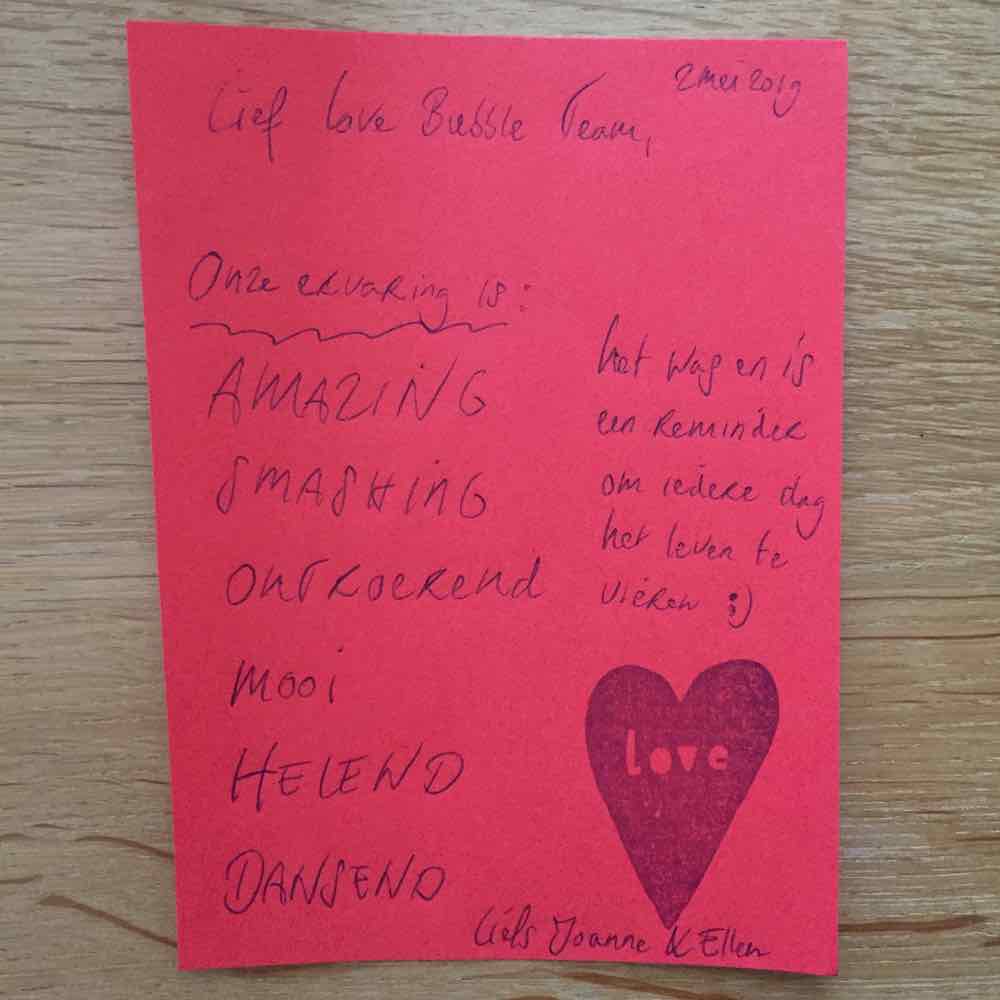 2 mei 2019
Lief Love Bubble Team,
Onze ervaring is:
AMAZING
SMASHING
ONTROEREND
MOOI
HELEND
DANSEND
het wagen is
een reminder
om iedere dag
het leven te
vieren :)
love
Liefs Joanne & Ellen